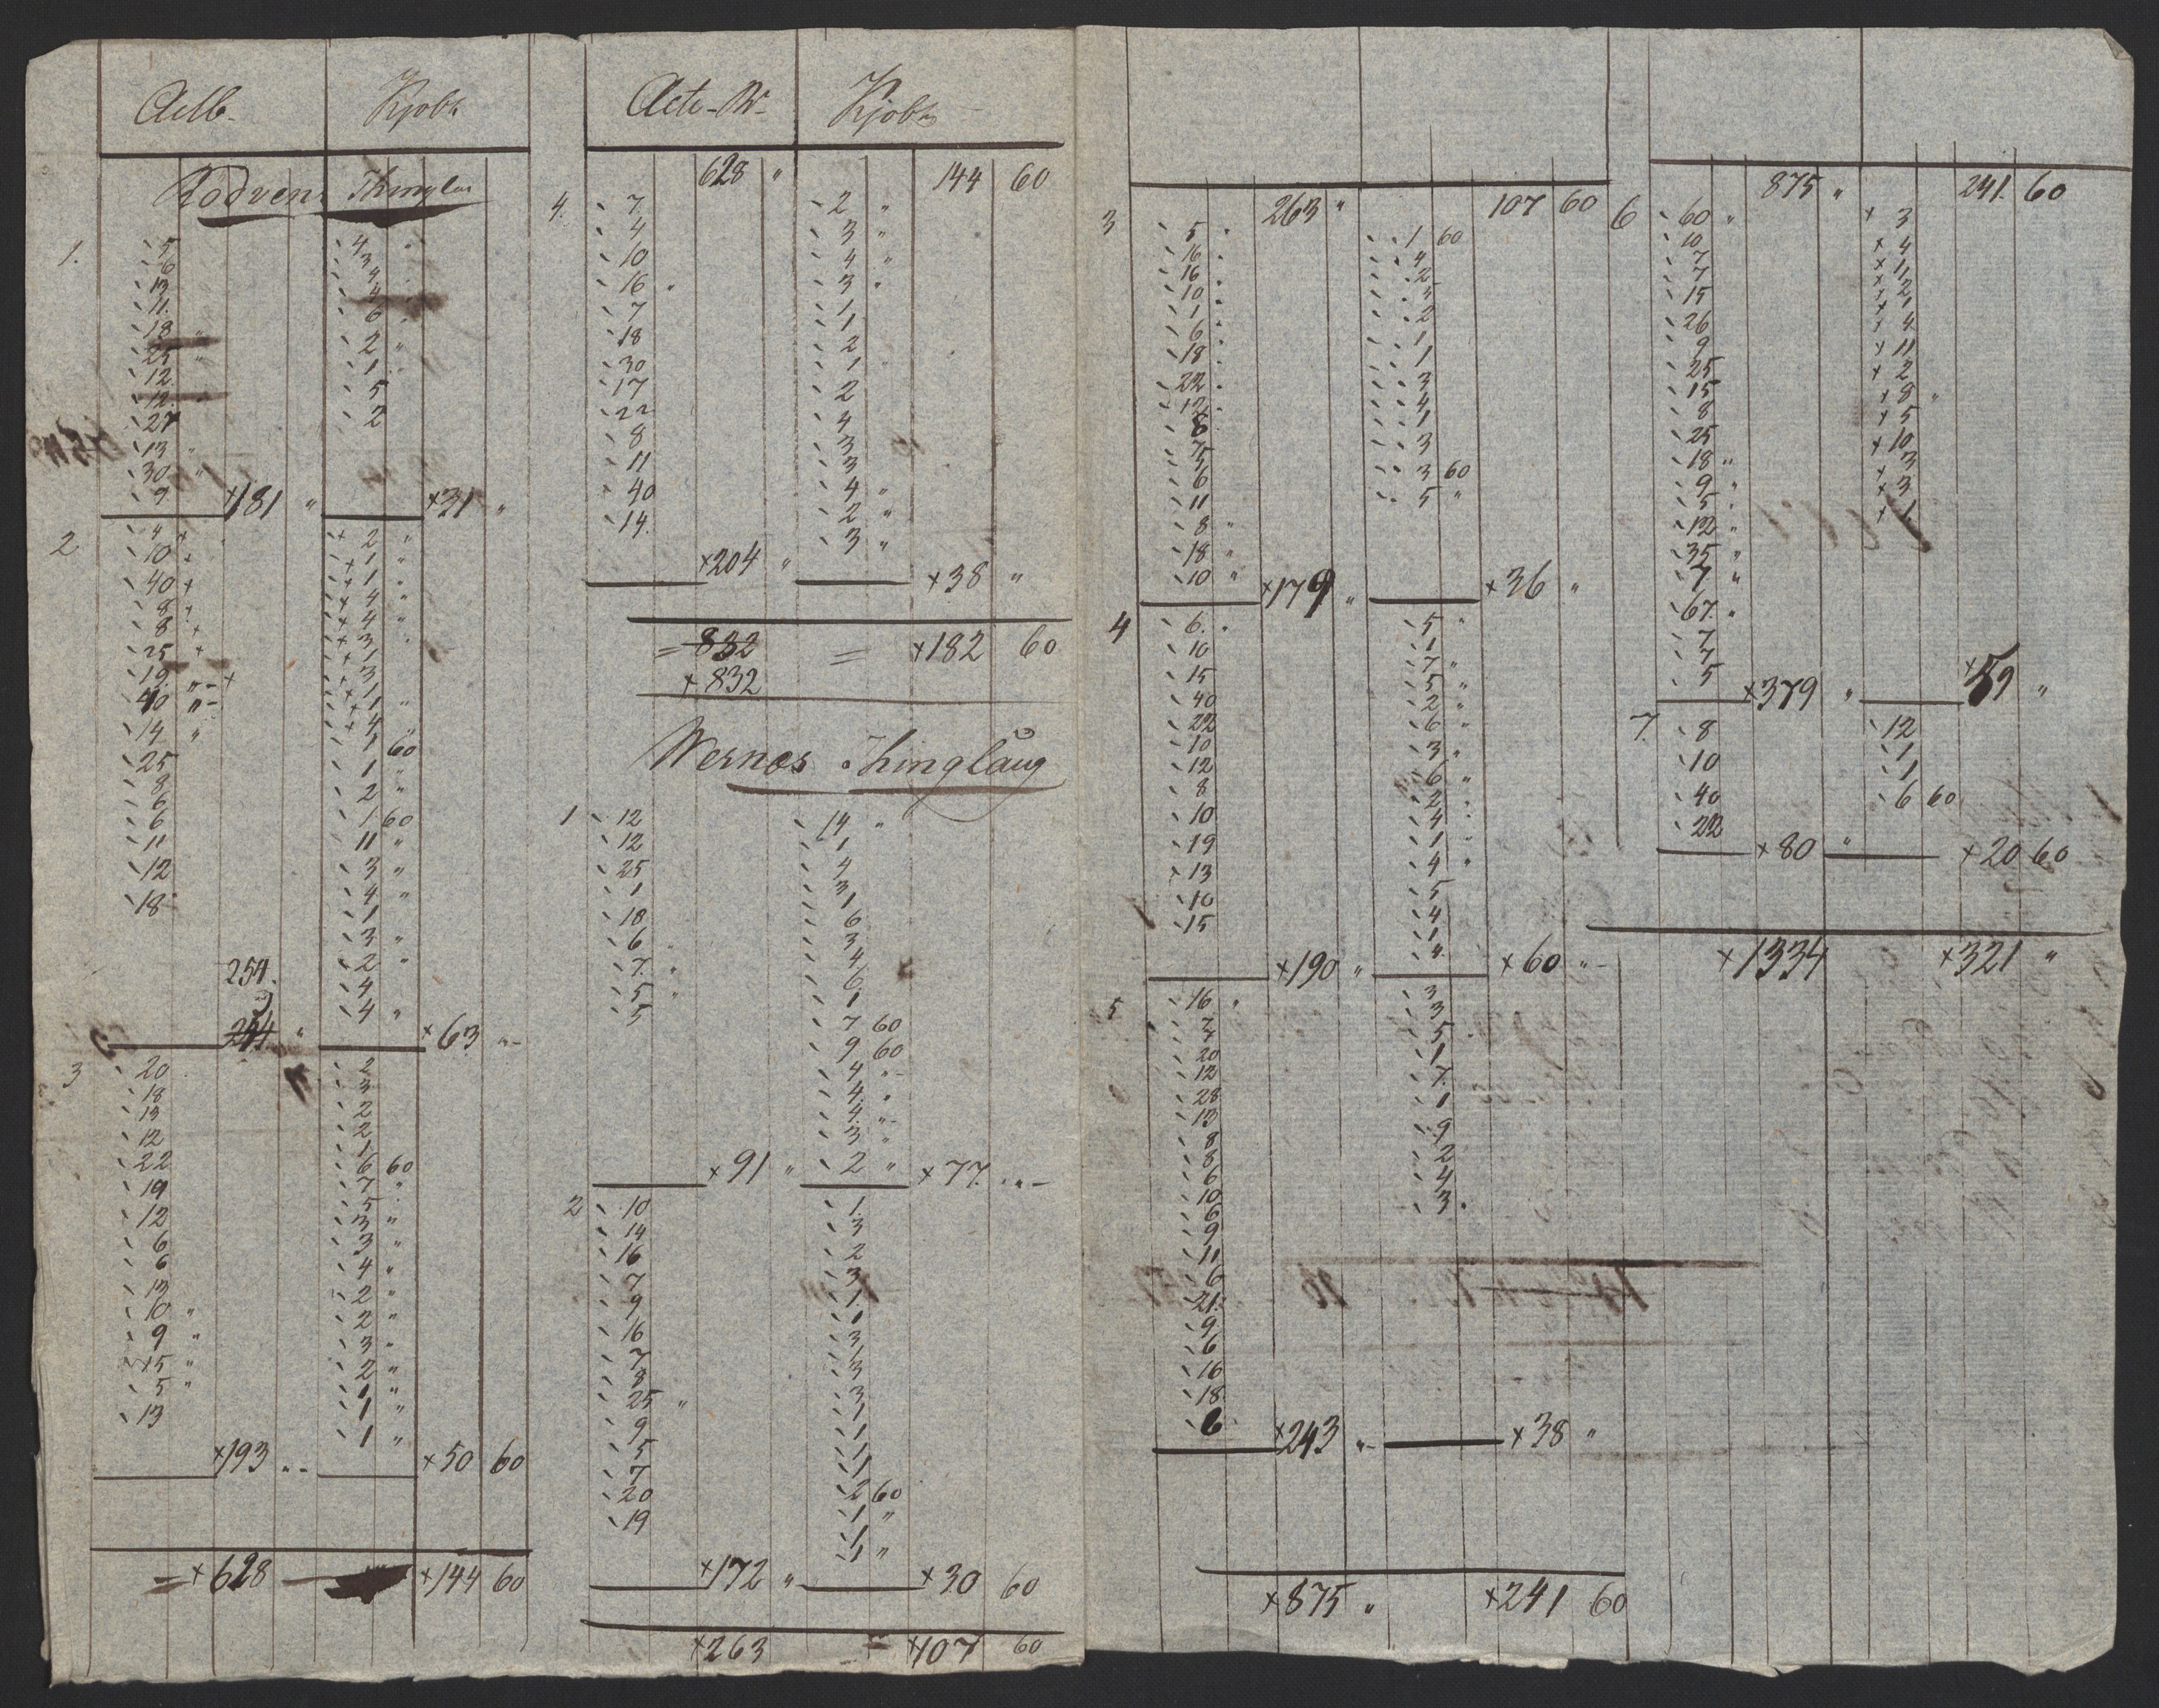 Aelb. Kjøbs
Rodvens Thinglau
1.
5 4 "
6 3
13 4
11. 4
18 " 6
25 " 2 "
12 1
12. 5
27 2
13 "
30 "
9 ×181 " ×31 "
2
4 × 2 "
10 × 1 "
40 × 1 "
8 × 4 "
8 × 4 "
25 × 3
19 " 1
40 " 3
14 " 1
25 1
8 4
6 1 60
6 1 "
11 2 "
12 1 60
18 11 "
3 "
4 "
1
3 "
2 "
254. 4
4 "
254 " ×63 "
3
20 2
18 3
13 2
12 2
22 1
19 6 60
12 7 "
6 5
6 3 "
13 3 "
10 " 4 "
9 " 2 "
15 " 2 "
5 " 3 "
13 2 "
1 "
1 "
1 "
×193 " ×50 60
= ×628 ×144 60
Aete-W- Kjøbs
628 " 144 60
4.
7 2 "
4 3 "
10 4 "
16 " 3 "
7 1
18 1
30 2
17 1 "
22 2
8 4
11 3
40 3
14. 4 "
2 "
3 "
×204 " ×38 "
= 832 = ×182 60
× 832
Wernøs Thinglaug
1
12 14 "
12 1
25 4
1 3
18 1
6 " 6
7 " 3
5 " 4
5 6
1
7 60
9 60
4 "
4 "
4 "
3 "
×91 " 2 " ×77 "
2
10 1.
14 3
16 2
7 3
9 1
16 1
7 3
8 3
25 " 3
9 1
5 1
7 1
20 2 60
19 1 "
1
1 "
×172 " ×30 60
×263 = ×107 60
263 " 107 60
3
5 " 1 60
16 " 4
16 " 2
10 "
1 " 2
6 " 1
18 " 1
22 " 3
12 " 4
8 1
3
6 3 60
11 5 "
8 "
18 "
10 " ×179 " ×36 "
4
6. " 5 "
10 1
15 7 "
40 5 "
22 2 "
10 6 "
12 3 "
8 6 "
10 2 "
19 4
13 1 "
10 4 "
15 5
4
1
4.
×190 " ×60 "
5
16 " 3
7 3
7 5 "
20 1
12 7.
28 1
13 9
8 2
8 4
6 3 "
10
6
9
11
6
21.
9
6
16
18
6 ×243 " ×38 "
×875 " ×241 60
875 " 241. 60
6
60 " × 3
10 × 4
7 × 1
7 × 2
15 × 1
26 × 4
9 × 11
25 × 2
15 × 8 "
8 × 5
25 × 10
18 " × 3
9 " × 3
5 " × 1.
12 "
35 "
7 "
67 "
7
7
5 ×379 " ×59 "
7.
8 12
10 1
40 1
22 6 60
×80 " ×20 60
×1334 ×321 "